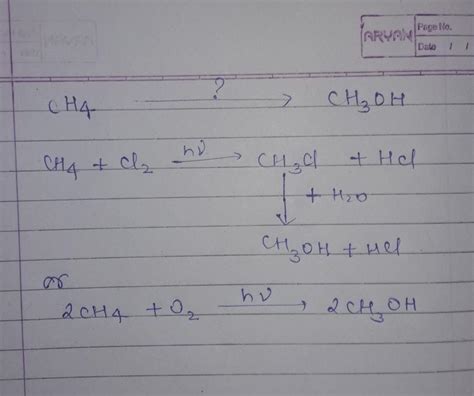 ARYAN Page No.
Date / /
CH4 ? → CH3OH
CH4 + Cl2 hν → CH3Cl + HCl
↓ + H2O
CH3OH + HCl
or
2CH4 + O2 hν → 2CH3OH